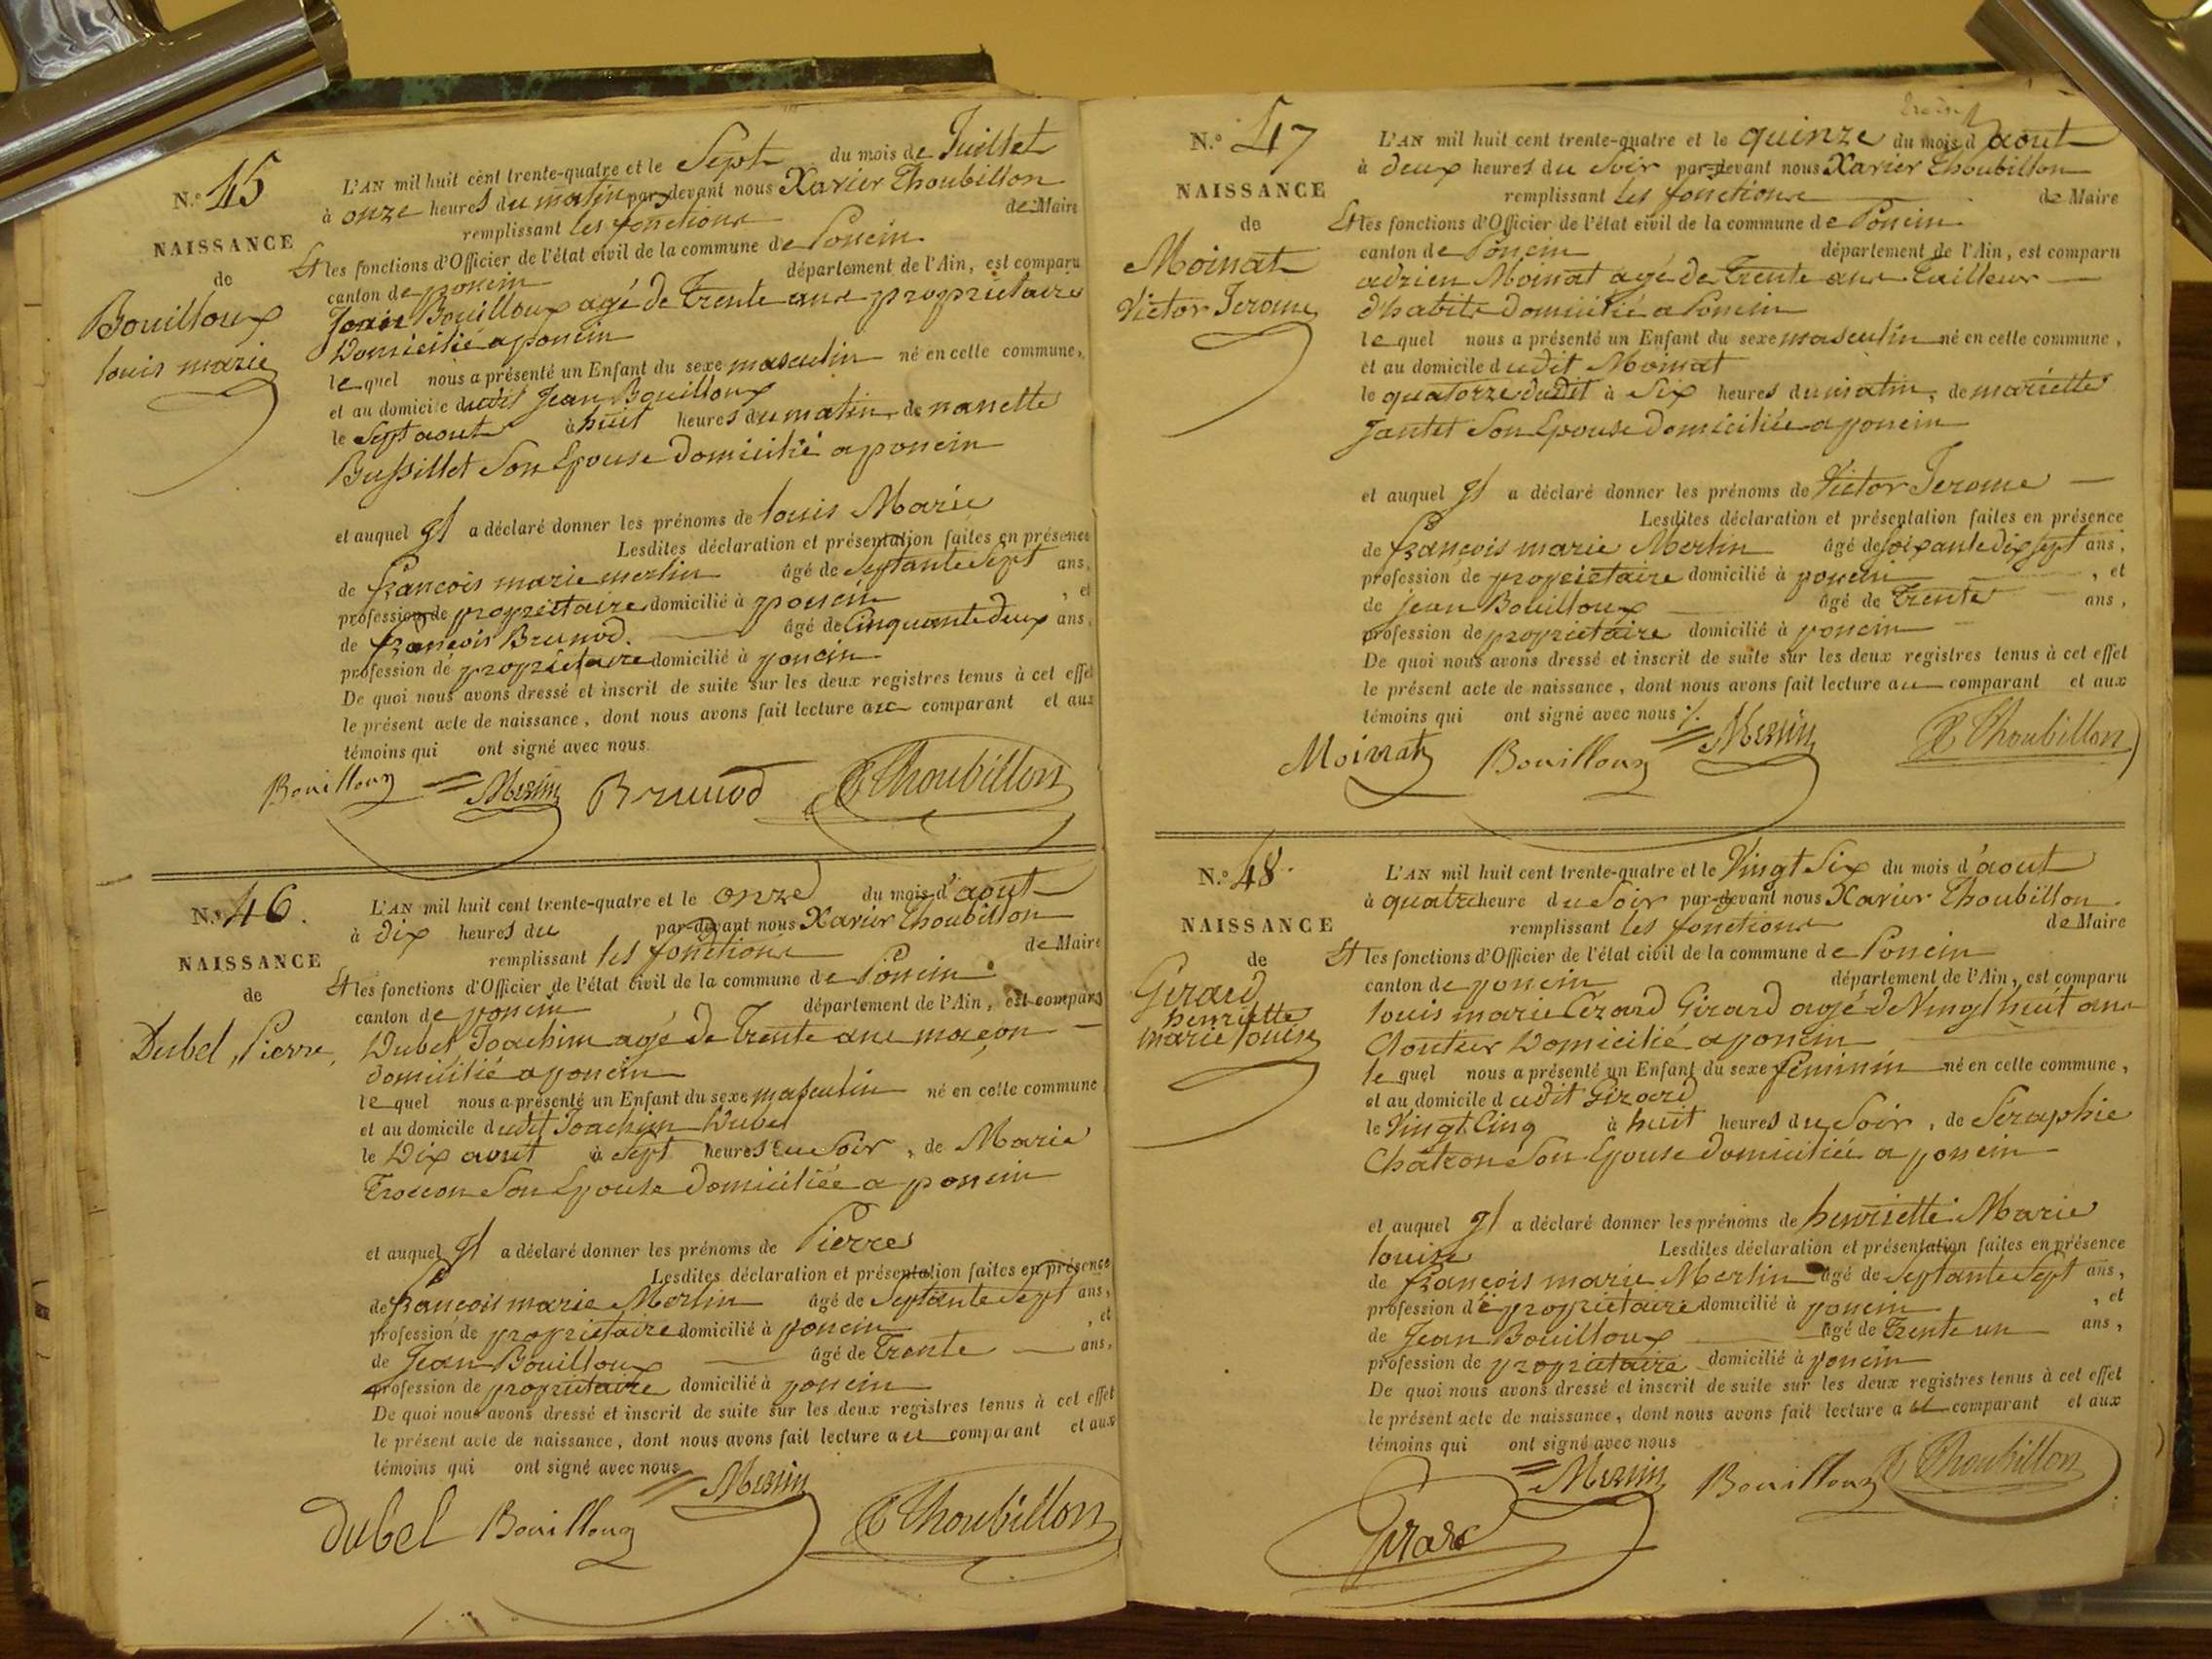 N.º 45
NAISSANCE
de
Bouilloux
louis marie
L'AN mil huit cent trente-quatre et le Sept du mois de Juillet
à onze heures du matin par-devant nous Xavier Thoubillon
remplissant les fonctions de Maire
Et les fonctions d'Officier de l'état civil de la commune de Poncin
canton de poncin département de l'Ain, est comparu
Bouilloux agé de Trente ans proprietaire
Domicilié a poncin
lequel nous a présenté un Enfant du sexe masculin né en cette commune,
et au domicile dudit Jean Bouilloux
le Sept aout à huit heures du matin, de nanette
Bussillet Son Epouse Domicilié a poncin
et auquel Il a déclaré donner les prénoms de louis Marie
Lesdites déclaration et présentation faites en présence
de françois marie merlin âgé de Septante Sept ans,
profession de propriétaire domicilié à poncin, et
de françois Brunod. âgé de Cinquante deux ans,
profession de propriétaire domicilié à poncin
De quoi nous avons dressé et inscrit de suite sur les deux registres tenus à cet effet
le présent acte de naissance, dont nous avons fait lecture au comparant et aux
témoins qui ont signé avec nous.
Bouilloux Merlin Brunod Thoubillon
N.º 46.
NAISSANCE
de
Dubel Pierre,
L'AN mil huit cent trente-quatre et le onze du mois d'aout
à dix heures du par-devant nous Xavier Thoubillon
remplissant les fonctions de Maire
Et les fonctions d'Officier de l'état civil de la commune de Poncin
canton de poncin département de l'Ain, est comparu
Dubel Joachim agé de Trente ans maçon
domicilié a poncin
lequel nous a présenté un Enfant du sexe masculin né en cette commune
et au domicile dudit Joachim Dubel
le Dix aout à Sept heures du Soir, de Marie
Trocon Son Epouse Domiciliée a poncin
et auquel Il a déclaré donner les prénoms de Pierre
Lesdites déclaration et présentation faites en présence
de françois marie Merlin âgé de Septante Sept ans,
profession de propriétaire domicilié à poncin, et
de Jean Bouilloux âgé de Trente ans,
profession de propriétaire domicilié à poncin
De quoi nous avons dressé et inscrit de suite sur les deux registres tenus à cet effet
le présent acte de naissance, dont nous avons fait lecture au comparant et aux
témoins qui ont signé avec nous
Merlin
Dubel Bouilloux Thoubillon
N.º 47
NAISSANCE
de
Moinat
Victor Jerome
L'AN mil huit cent trente-quatre et le quinze du mois d aout
à deux heures du Soir par-devant nous Xavier Thoubillon
remplissant les fonctions de Maire
Et les fonctions d'Officier de l'état civil de la commune de Poncin
canton de Poncin département de l'Ain, est comparu
adrien Moinat agé de Trente ans Tailleur
d'habits domicilié a Poncin
lequel nous a présenté un Enfant du sexe masculin né en cette commune,
et au domicile dudit Moinat
le quatorze dudit à Six heures du matin, de mariette
Jantet Son Epouse domiciliée a poncin
et auquel Il a déclaré donner les prénoms de Victor Jerome
Lesdites déclaration et présentation faites en présence
de françois marie Merlin âgé de soixante dix sept ans,
profession de propriétaire domicilié à poncin, et
de jean Bouilloux âgé de Trente ans,
profession de propriétaire domicilié à poncin
De quoi nous avons dressé et inscrit de suite sur les deux registres tenus à cet effet
le présent acte de naissance, dont nous avons fait lecture au comparant et aux
témoins qui ont signé avec nous ./.
Moinat Bouilloux Merlin Thoubillon
N.º 48.
NAISSANCE
de
Gerard
henriette
marie louise
L'AN mil huit cent trente-quatre et le Vingt Six du mois d'aout
à quatre heure du Soir par-devant nous Xavier Thoubillon
remplissant les fonctions de Maire
Et les fonctions d'Officier de l'état civil de la commune de Poncin
canton de poncin département de l'Ain, est comparu
louis marie Cézard Girard agé de Vingt huit ans
Cloutier Domicilié a poncin
lequel nous a présenté un Enfant du sexe féminin né en cette commune,
et au domicile dudit Girard
le Vingt Cinq à huit heures du Soir, de Séraphie
Chatron Son Epouse Domiciliée a poncin
et auquel Il a déclaré donner les prénoms de henriette Marie
louise Lesdites déclaration et présentation faites en présence
de françois marie Merlin âgé de Septante Sept ans,
profession de propriétaire domicilié à poncin, et
de Jean Bouilloux âgé de Trente un ans,
profession de propriétaire domicilié à poncin
De quoi nous avons dressé et inscrit de suite sur les deux registres tenus à cet effet
le présent acte de naissance, dont nous avons fait lecture au comparant et aux
témoins qui ont signé avec nous
Merlin Bouilloux Thoubillon
Girard